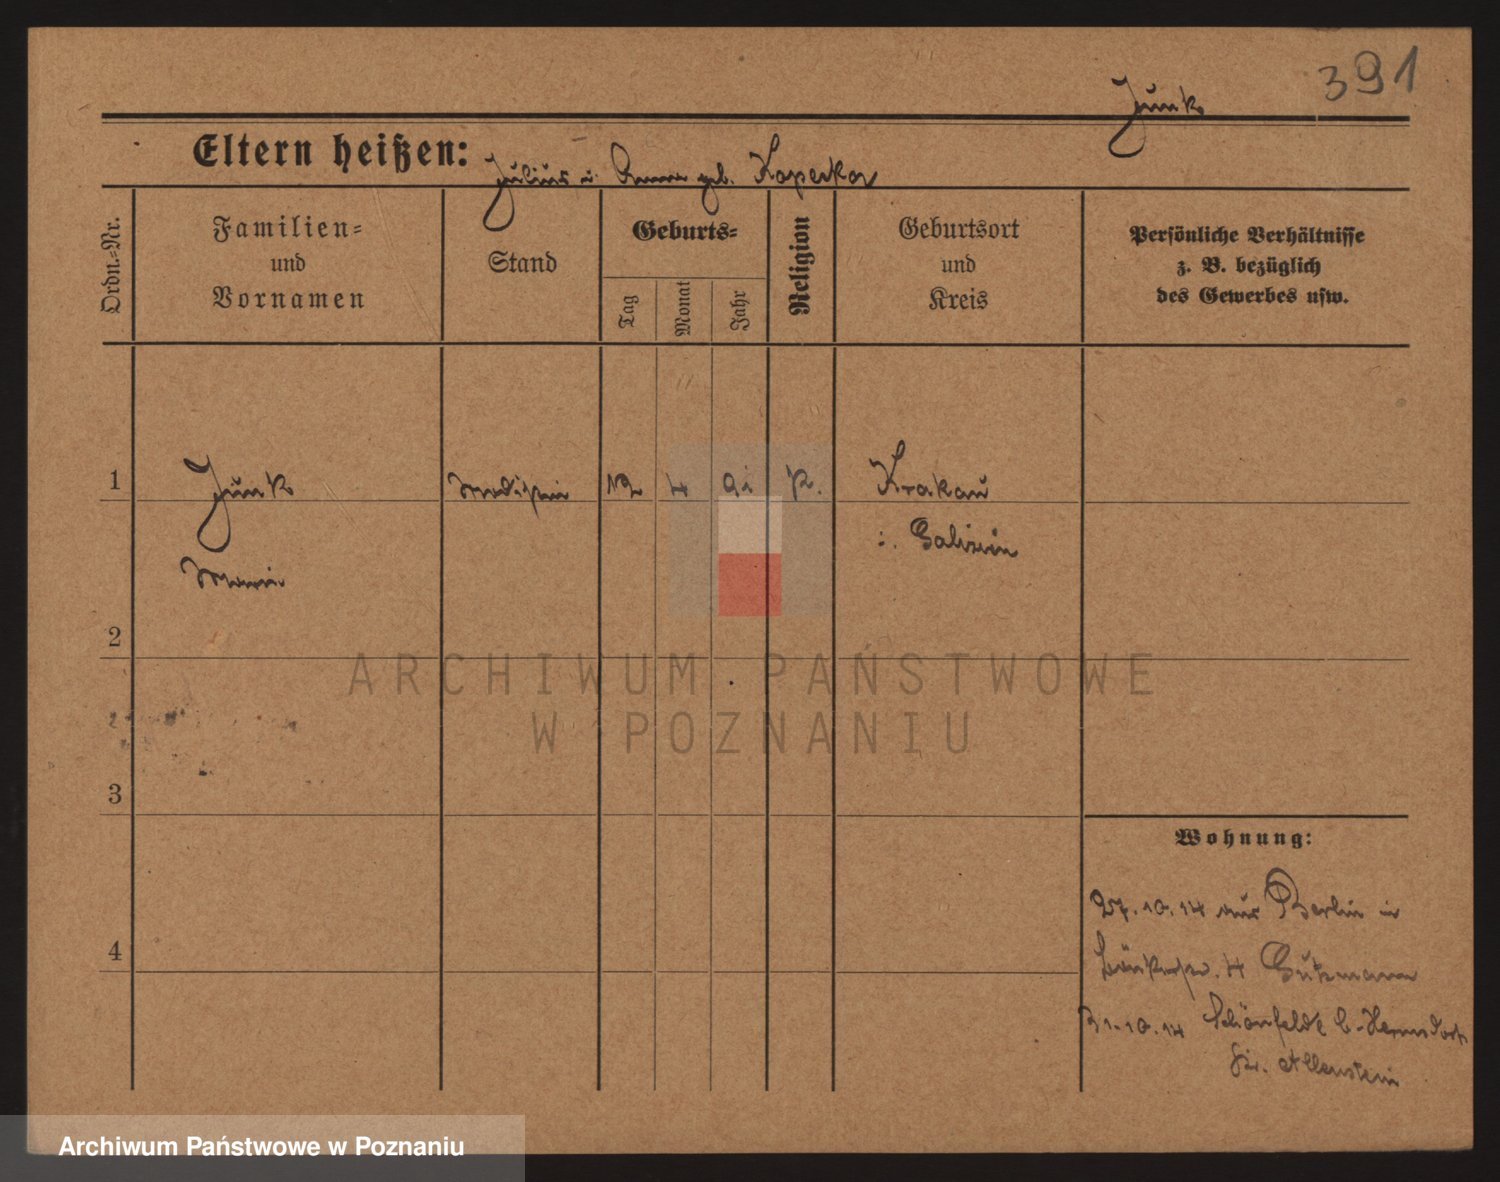 391
Junk
Eltern heißen: Julius u. Anna geb. Koperka
Ordn.-Nr.
Familien-
und
Vornamen
Stand
Geburts-
Tag
Monat
Jahr
Religion
Geburtsort
und
Kreis
Persönliche Verhältnisse
z. B. bezüglich
des Gewerbes usw.
1
Junk
4
91
k.
Krakau
i. Galizien
Marie
2
ARCHIWUM PAŃSTWOWE
W POZNANIU
3
Wohnung:
27.10.14 aus Berlin in
4
4 Gutzmann
31.10.14 Schönfelde b. Hermsdorf
Kr. Allenstein
Archiwum Państwowe w Poznaniu